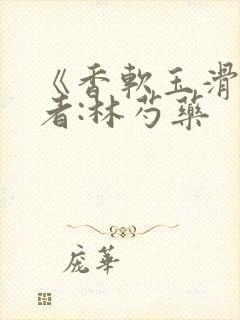 《香軟玉滑
者:林芍藥
庞華